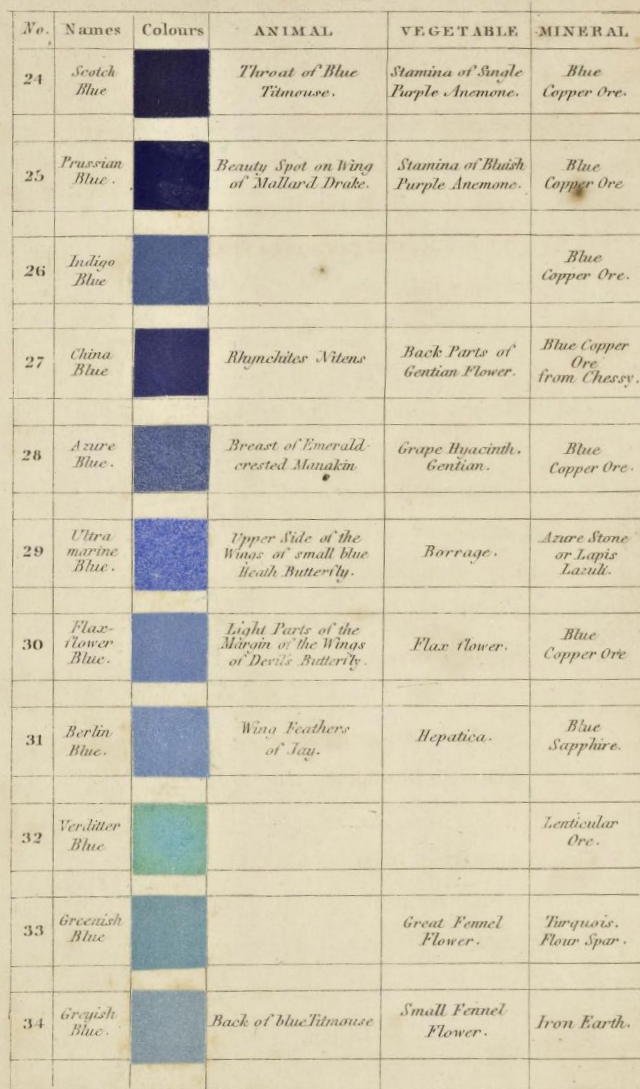 No. Names Colours ANIMAL VEGETABLE MINERAL
24 Scotch Blue Throat of Blue Titmouse. Stamina of Single Purple Anemone. Blue Copper Ore.
25 Prussian Blue. Beauty Spot on Wing of Mallard Drake. Stamina of Bluish Purple Anemone. Blue Copper Ore
26 Indigo Blue Blue Copper Ore.
27 China Blue Rhynchites Nitens Back Parts of Gentian Flower. Blue Copper Ore from Chessy.
28 Azure Blue. Breast of Emerald-crested Manakin Grape Hyacinth. Gentian. Blue Copper Ore.
29 Ultra marine Blue. Upper Side of the Wings of small blue Heath Butterfly. Borrage. Azure Stone or Lapis Lazuli.
30 Flax-flower Blue. Light Parts of the Margin of the Wings of Devils Butterfly. Flax flower. Blue Copper Ore
31 Berlin Blue. Wing Feathers of Jay. Hepatica. Blue Sapphire.
32 Verditter Blue Lenticular Ore.
33 Greenish Blue Great Fennel Flower. Turquois. Flour Spar.
34 Greyish Blue. Back of blue Titmouse Small Fennel Flower. Iron Earth.